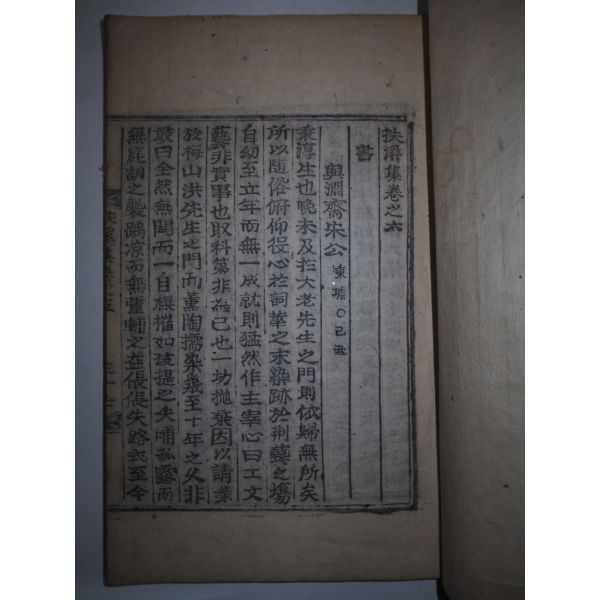 扶溍集卷之六
書
與淵齋宋公 東瓛○己丑
秉淳生也晩未及於大老先生之門則依歸無所矣
所以隨俗俯仰役心於詞華之末染跡於荆藝之場
自幼至立年而無一成就則猛然作主宰心曰工文
藝非實事也取科第非為己也一切抛棄因以請業
於梅山洪先生之門而薰陶擩染幾至十年之久非
敢曰全然無聞而一自樑摧如孩提之失哺孤露而
無庭訓之襲踽凉而無麗輔之益倀倀失路式至今